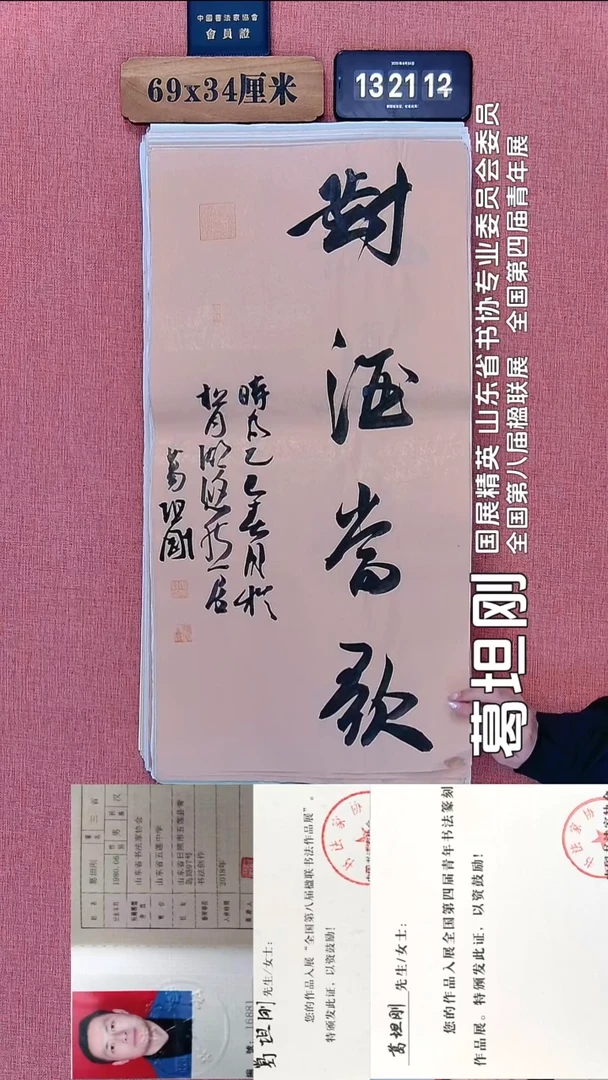 中國書法家協會
會員證
69x34厘米
13 21 12
對酒當歌
時在乙巳春月於
葛坦剛
国展精英 山东省书协专业委员会委员
全国第八届楹联展 全国第四届青年展
葛坦刚
葛坦刚
山东省书法家协会
山东省五莲中学
书法创作
2019年
16881
葛坦刚 先生/女士：
您的作品入展“全国第八届楹联书法作品展”。
特颁发此证，以资鼓励！
葛坦刚 先生/女士：
您的作品入展全国第四届青年书法篆刻
作品展。特颁发此证，以资鼓励！